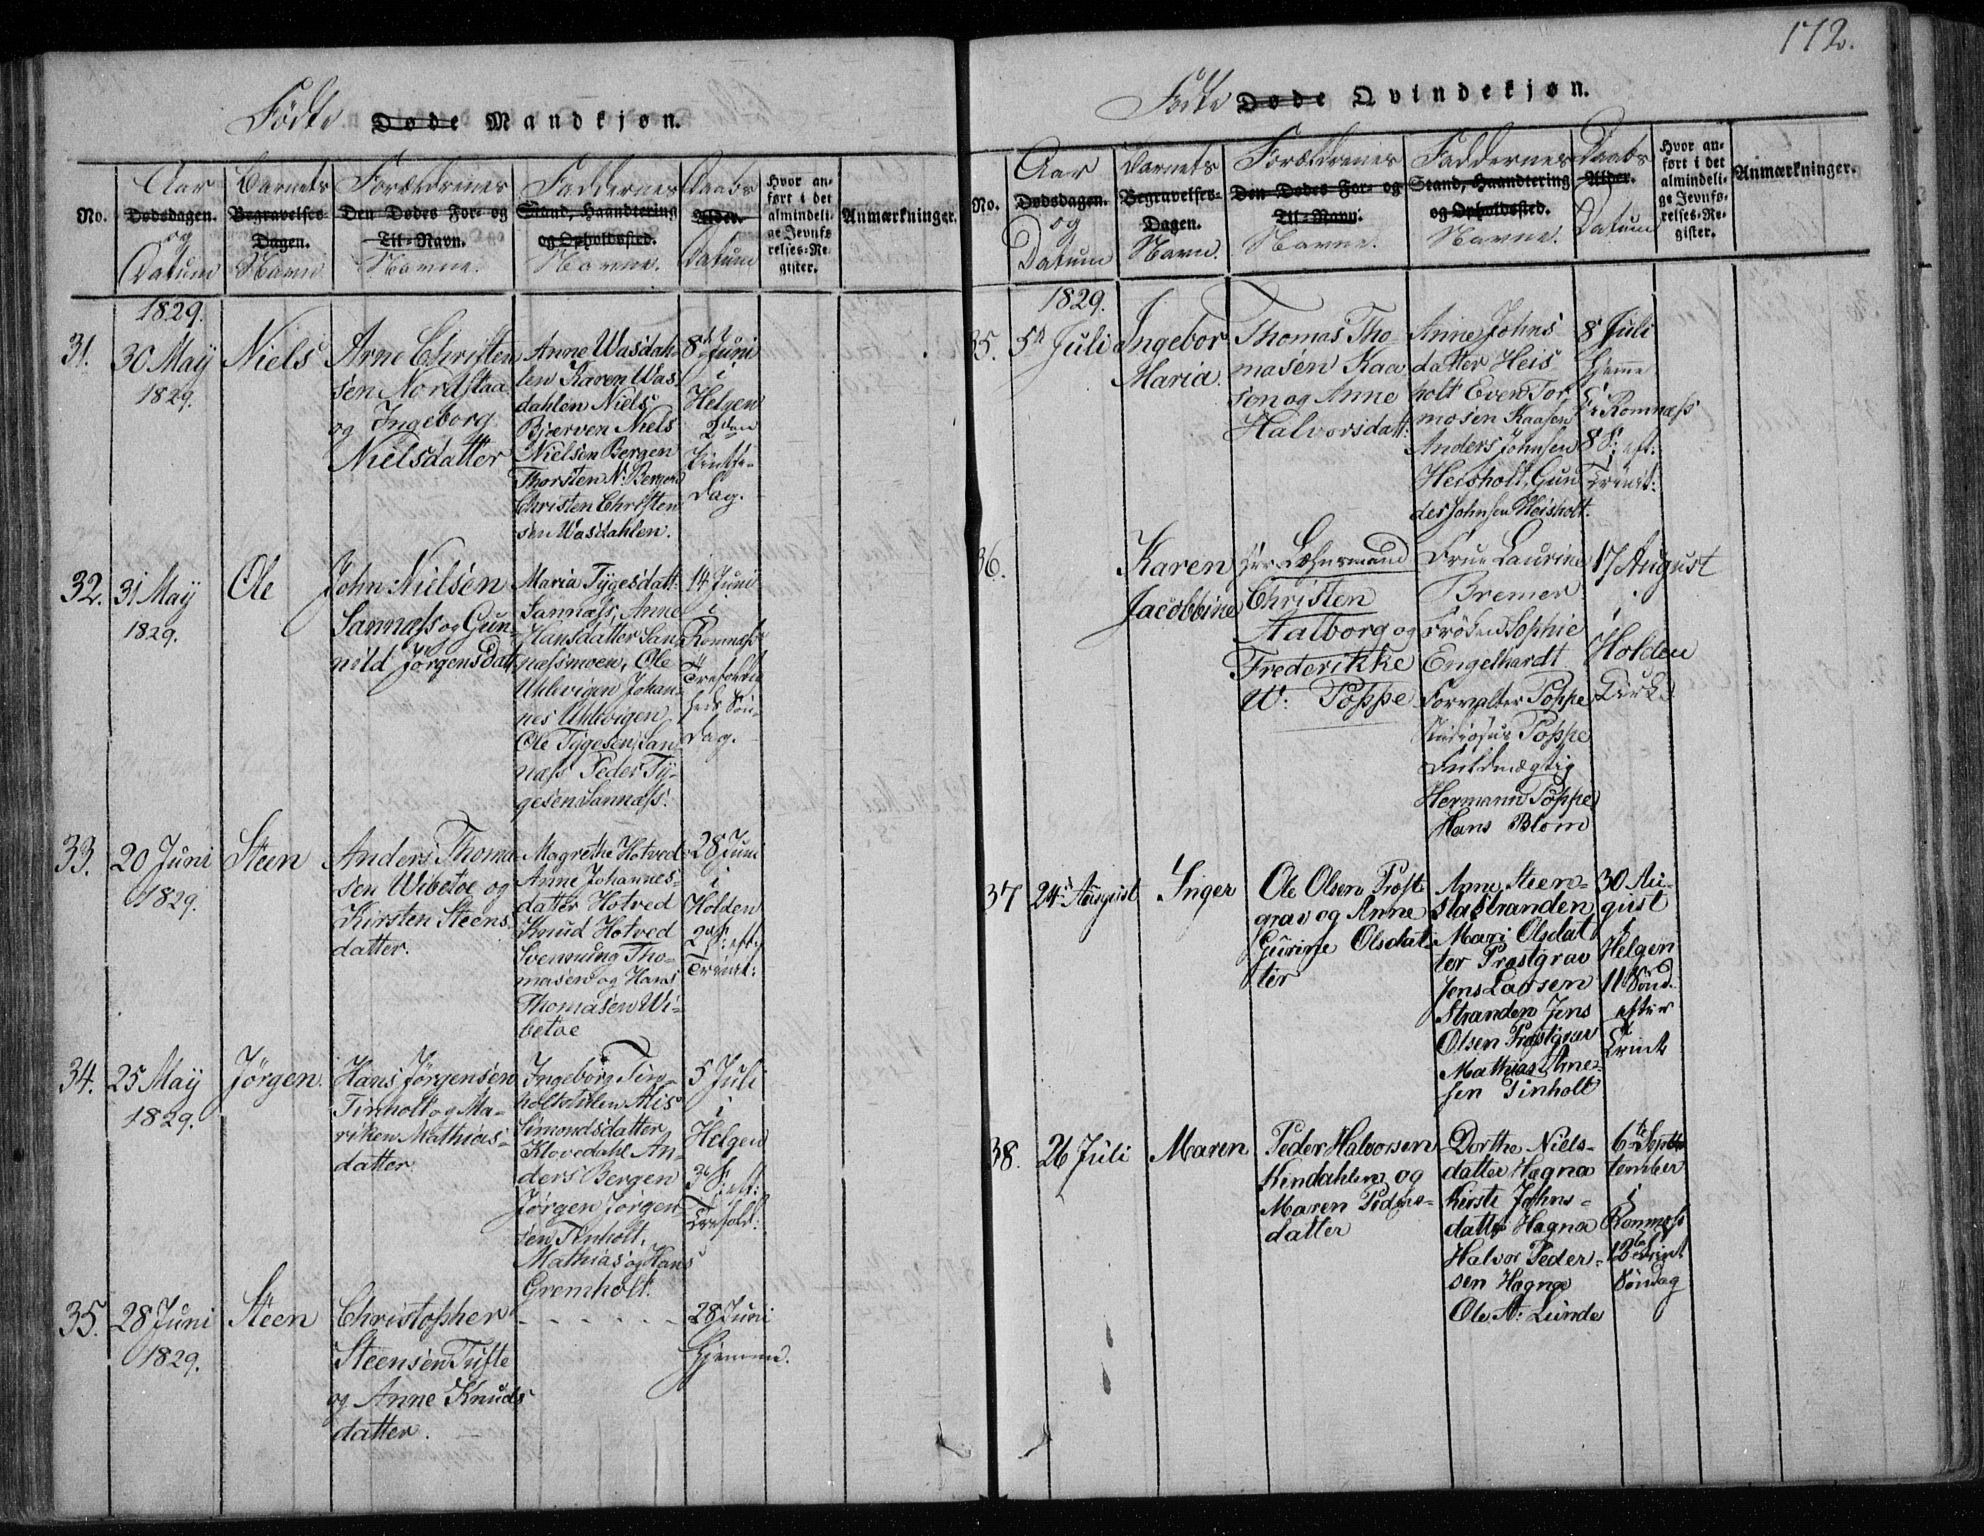 Fødte Døde Mandkjøn.
No.
Aar
Dødsdagen.
og
Datum
Barnets
Begravelses-
Dagen.
Navn
Forældrenes
Den Dødes For- og
Til-Navn.
Navne.
Faddernes
Stand, Haandtering
og Opholdssted.
Navne.
Daabs
Alder.
Datum
Hvor an-
ført i det
almindeli-
ge Jevnfø
relses-Re-
gister.
Anmærkninger.
1829.
31.
30 May
1829.
Niels
Arne Christen
sen Nordstaa
og Ingeborg
Nielsdatter
Anne Wasdah
len Karen Was
dahlen Niels
Bjærven Niels
Nielsen Bergen
Thorsten N. Bergen
Christen Christen
sen Wasdahlen.
8de Juni
i
Helgen
2den
Pintse-
dag.
32.
31 May
1829.
Ole
John Nielsen
Sannæss og Gun-
nild Jørgensdatt.
Maria Tygesdatt:
Sannæss, Anne
Hansdatter San
næssmoen, Ole
Uhlevigen Johan-
nes Uhlevigen
Ole Tygesen San
næss Peder Ty-
gesen Sannæss.
14 Juni
i
Romnæss
Trefoldig
heds Søn-
dag.
33.
20 Juni
1829.
Steen
Anders Thoma
sen Wibetoe og
Kirsten Steens
datter.
Magrethe Hotved
Anne Johannes-
datter Hotved
Knud Hotved
Svennung Tho-
masen og Hans
Thomasen Wi-
betoe
28 Juni
i
Holden
2 S: eft:
Trinit:
34.
25 May
1829.
Jørgen
Hans Jørgensen
Tinholt og Ma-
riken Mathias-
datter
Ingeborg Tin-
holt Alis
Simondsdatter
Klovedahl An-
ders Bergen
Jørgen Jørgen
sen Tinholt,
Mathias og Hans
Gremholt.
5 Juli
i
Helgen
3 S: eft:
Trefold:
35.
28 Juni
1829.
Steen
Christopher
Steensen Tufte
og Anne Knuds
datter.
- - - - - -
28 Juni
Hjemme.
172.
Fødte Døde Qvindekjøn.
No.
Aar
Dødsdagen.
og
Datum
Barnets
Begravelses-
Dagen.
Navn.
Forældrenes
Den Dødes For- og
Til-Navn.
Navne.
Faddernes
Stand, Haandtering
og Opholdssted.
Navne.
Daabs
Alder.
Datum
Hvor an-
ført i det
almindeli-
ge Jevnfø-
relses-Re-
gister.
Anmærkninger.
1829.
35.
5te Juli
Ingebor
Maria.
Thomas Tho-
masen Kaa
sen og Anne
Halvorsdatt:
Anne Johns
datter Heis
holt Even Tor
mosen Kaasen
Anders Johnsen
Heisholt, Gun
der Johnsen Heisholt.
8 Juli
Hjemme
i Romnæss
8 S: eft:
Trinit:
36.
Karen
Jacobbine
Hr Lehnsmand
Christen
Aalborg og
Frederikke
W. Poppe
Frue Laurine
Bremer
Frøken Sophie
Engelhardt
Forvalter Poppe
Studiosus Poppe
Fuldmægtig
Hermann Poppe
Hans Blom
17 August
i
Holden
Kirke
37
24de August
Inger
Ole Olsen Præst
grav og Anne
Gurine Olsdat-
ter
Anne Steen-
sla Stranden
Mari Olsdat
ter Præstgrav
Jens Larsen
Stranden Jens
Olsen Præstgrav
Mathias Arne-
sen Tinholt
30 Au-
gust
i
Helgen
11 Sønd.
efter
Trint
38.
26 Juli
Maren
Peder Halvorsen
Kindahlen og
Maren Peders-
datter
Dorthe Niels-
datter Hagna
Kirsti Johns-
datter Hagna
Halvor Peder-
sen Hagna
Ole A: Lunde
6te Sept
tember
i
Romnæss
12 Trint
Søndag